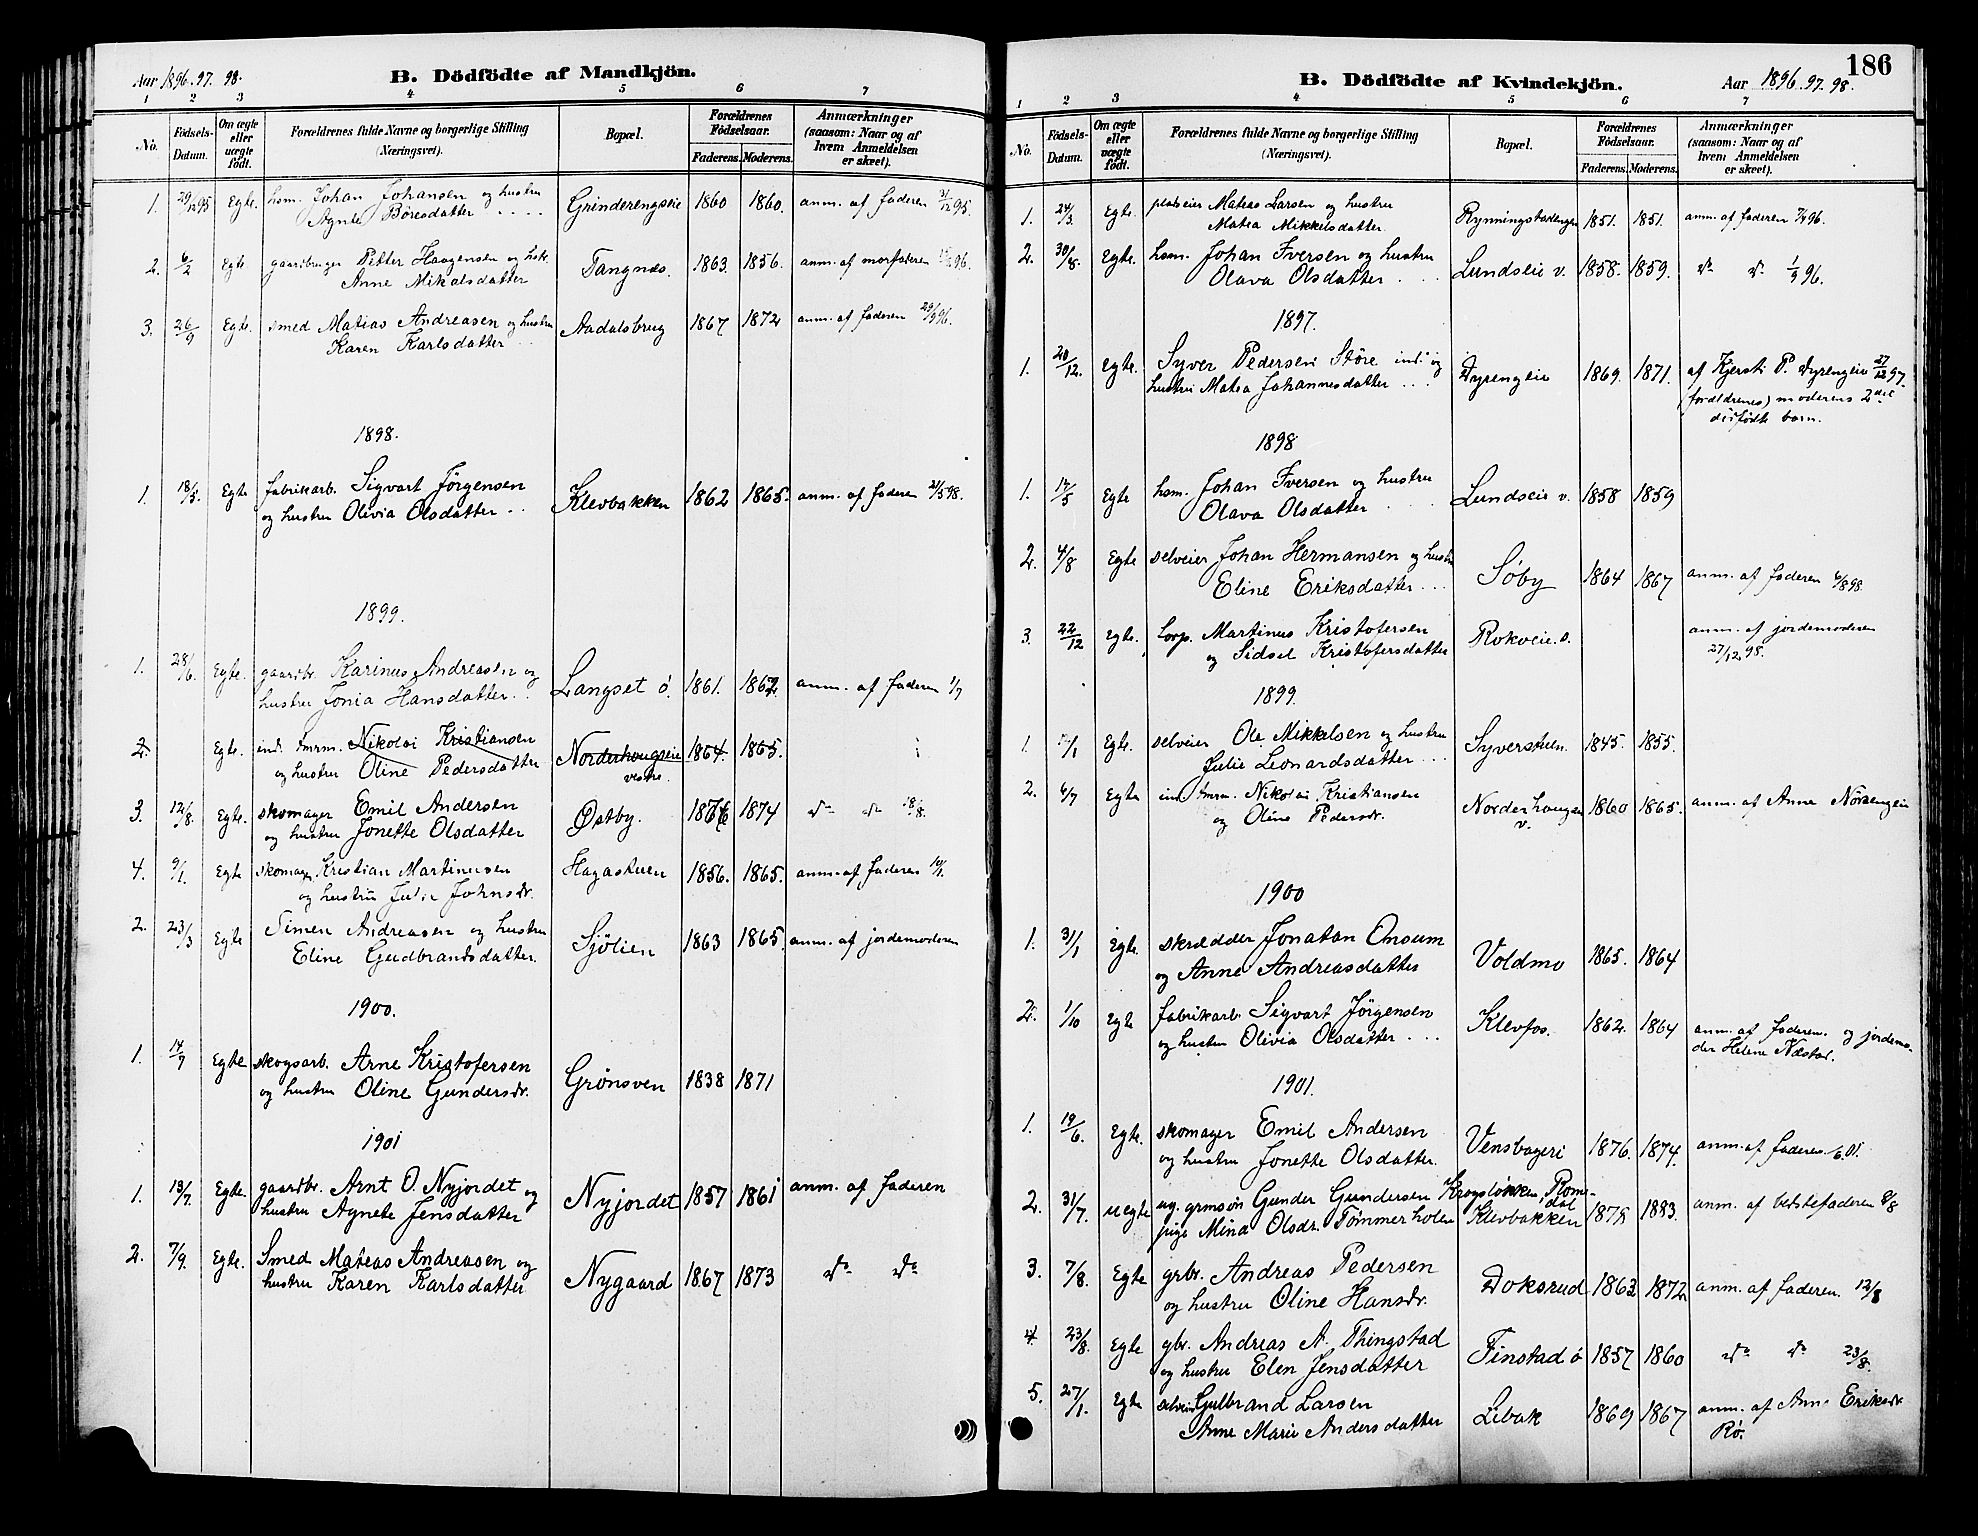 Aar 1896. 97. 98.
B. Dödfödte af Mandkjön.
1 2 3 4 5 6 7
No.
Födsels-Datum.
Om ægte eller uægte födt.
Forældrenes fulde Navne og borgerlige Stilling (Næringsvei).
Bopæl.
Forældrenes Födselsaar.
Faderens. Moderens.
Anmærkninger (saasom: Naar og af hvem Anmeldelsen er skeet).
1. 29/12 95 Egte. hsm. Johan Johansen og hustru Grinderengseie 1860 1860. anm. af faderen 31/12 95.
Agnte Børesdatter . . . .
2. 6/2 Egte gaardbruger Petter Haagensen og hstr. Tangnæs. 1863. 1856. anm. af morfaderen 96.
Anne Mikalsdatter
3. 26/9 Egte. smed Matias Andreasen og hustru Aadalsbrug 1867 1872 anm. af faderen 29/9 96.
Karen Karlsdatter . .
1898.
1. 18/5. Egte fabrikarb. Sigvart Jørgensen Klevbakken 1862 1865. anm. af faderen 21/5 98.
og hustru Olivia Olsdatter . .
1899.
1. 28/6. Egte. gaardbr. Karinus Andreasen og Langset ø. 1861. 1862. anm. af faderen 1/7
hustru Jonia Hansdatter . .
2. Egte. ind. tmrm. Nikolai Kristiansen Norderhougseie 1864. 1865.
og hustru Oline Pedersdatter vestre.
3. 12/8. Egte. skomager Emil Andersen Østby. 1876 1874 do do 18/8.
og hustru Jonette Olsdatter
4. 9/1. Egte skomager Kristian Martinusen Hagastuen 1856. 1865. anm. af faderen 10/1.
og hustru Julie Johnsdr.
2. 23/3 Egte Simen Andreasen og hustru Sjølien 1863 1865. anm. af jordemoderen
Eline Gudbrandsdatter.
1900.
1. 14/7 Egte skogsarb. Arne Kristofersen Grønsven 1838 1871
og hustru Oline Gundersdr.
1901
1. 13/7. Egte. gaardbr. Arnt O. Nyjordet og Nyjordet 1857 1861 anm. af faderen
hustru Agnete Jensdatter
2. 7/9. Egte. Smed Mateas Andreasen og Nygaard 1867 1873 do do
hustru Karen Karlsdatter
186
B. Dödfödte af Kvindekjön.
Aar 1896. 97. 98.
1 2 3 4 5 6 7
No.
Födsels-Datum.
Om ægte eller uægte födt.
Forældrenes fulde Navne og borgerlige Stilling (Næringsvei).
Bopæl.
Forældrenes Födselsaar.
Faderens. Moderens.
Anmærkninger (saasom: Naar og af hvem Anmeldelsen er skeet).
1. 24/3. Egte. pladseier Mateas Larsen og hustru 1851. 1851. anm. af faderen 96.
Matea Mikkelsdatter.
2. 30/8. Egte. hsm. Johan Iversen og hustru Lundseie v. 1858. 1859. do do 1/9 96.
Olava Olsdatter . . .
1897.
1. 20/12. Egte. Syver Pedersen Støre ind. og Dyrengeie 1869. 1871. af Kjersti P. Dyrengeie 27/12 97.
hustru Matea Johannesdatter . . . (forældrenes) moderens 2det
dødfødte barn.
1898
1. 17/5 Egte hsm. Johan Iversen og hustru Lundseie v. 1858 1859
Olava Olsdatter . . .
2. 4/8 Egte selveier Johan Hermansen og hustru Søby 1864 1867 anm. af faderen 6/8 98.
Eline Eriksdatter . . .
3. 22/12 Egte. Martinus Kristofersen Rokveie. v. anm. af jordemoderen
og Sidsel Kristofersdatter 27/12 98.
1899.
1. Egte. selveier Ole Mikkelsen og hustru Syverstuen. 1845. 1855.
Julie Leonardsdatter . . .
2. 6/7 Egte ind. tmrm. Nikolai Kristiansen 1860 1865. anm. af Anne
og Oline Pedersdr. v.
1900
1. 31/1 Egte. skrædder Jonatan Onsum Voldmo 1865. 1864
og Anne Andreasdatter
2. 1/10 Egte fabrikarb. Sigvart Jørgensen Klevfos. 1862. 1864 anm. af faderen. og jordemo-
og hustru Olivia Olsdatter . . . der Helene Næstad.
1901.
1. 19/6. Egte. skomager Emil Andersen 1876. 1874. anm. af faderen /6 01.
og hustru Jonette Olsdatter.
2. 31/7. uegte ug. grmsøn Gunder Gundersen Krogsløkken, Rome-
dal
pige Mina Olsdt. Tømmerholen Klevbakken 1878 1883. anm. af betstefaderen 8/8
3. 7/8. Egte grbr. Andreas Pedersen Doksrud 1863 1872 anm. af faderen. 12/8
og hustru Oline Hansdr.
4. 23/8. Egte gbr. Andreas A. Thingstad Finstad ø 1857 1860 do do 23/8.
og hustru Elen Jensdatter
5. 27/1. Egte selveier Gulbrand Larsen Libak 1869 1867 anm. af Anne Eriksdr.
Anne Marie Andersdatter Rø.